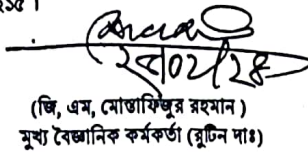 ২৮/০২/২৪
(জি, এম, মোস্তাফিজুর রহমান)
মুখ্য বৈজ্ঞানিক কর্মকর্তা (রুটিন দাঃ)